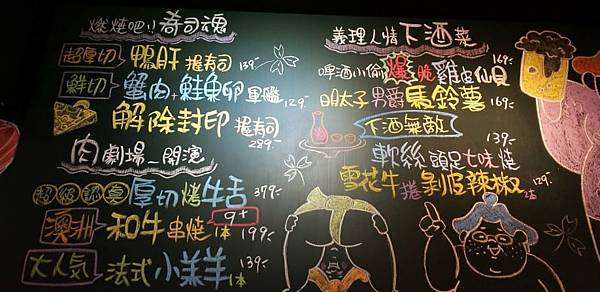 燃燒吧小壽司魂
超厚切 鴨肝握寿司 139-
鮮切 蟹肉+鮭魚卵軍艦 129-
解除封印握寿司 289-
肉劇場~開演
厚切烤牛舌 379-
澳洲 和牛串燒 9+ 1本 199-
大人氣 法式小羊羊 1本 139-
義理人情下酒菜
啤酒小偷爆脆雞皮仙貝 169-
明太子男爵馬鈴薯 169-
下酒無敵
軟絲頭足七味燒 139-
雪花牛捲剝皮辣椒 2本 129-